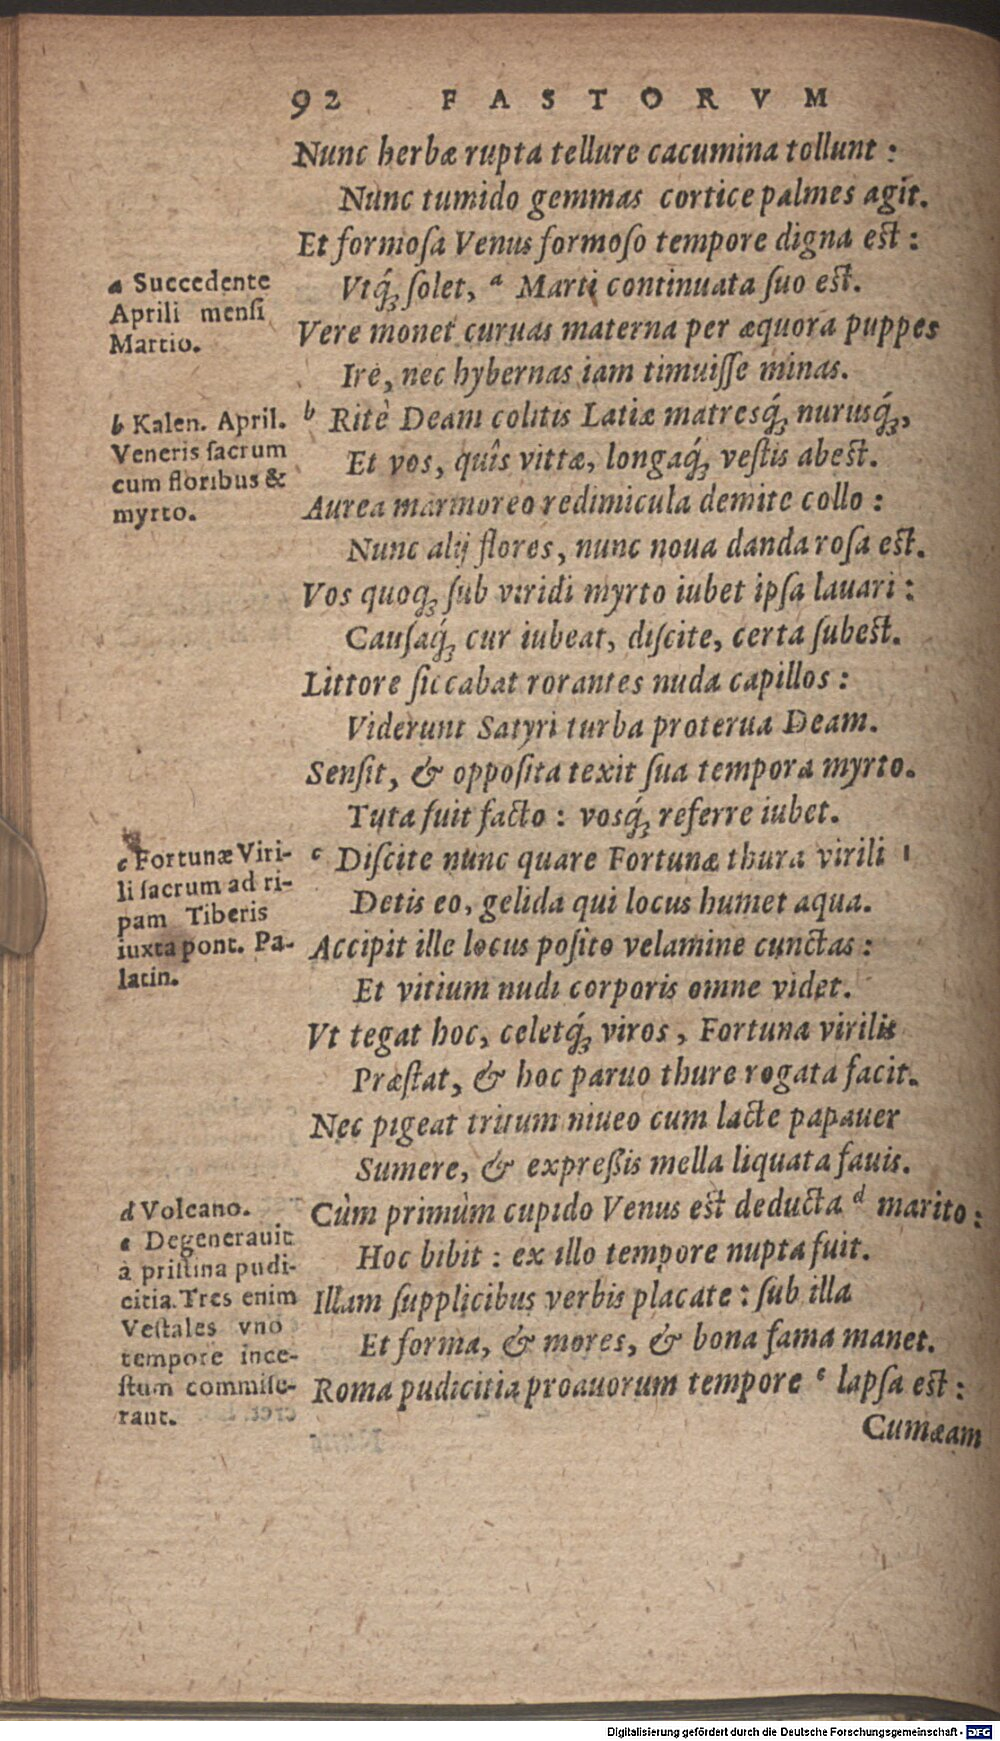 92 FASTORVM
Nunc herbæ rupta tellure cacumina tollunt :
Nunc tumido gemmas cortice palmes agit.
Et formoſa Venus formoſo tempore digna eſt :
Vtq́ꝫ ſolet, ᵃ Marti continuata ſuo eſt.
Vere monet curuas materna per æquora puppes
Ire, nec hybernas iam timuiſſe minas.
ᵇ Ritè Deam colitis Latiæ matresq́ꝫ nurusq́ꝫ,
Et vos, quîs vittæ, longaq́ꝫ veſtis abeſt.
Aurea marmoreo redimicula demite collo :
Nunc alij flores, nunc noua danda roſa eſt.
Vos quoqꝫ ſub viridi myrto iubet ipſa lauari :
Cauſaq́ꝫ cur iubeat, diſcite, certa ſubeſt.
Littore ſiccabat rorantes nuda capillos :
Viderunt Satyri turba proterua Deam.
Senſit, & oppoſita texit ſua tempora myrto.
Tuta fuit facto : vosq́ꝫ referre iubet.
ᶜ Diſcite nunc quare Fortunæ thura virili
Detis eo, gelida qui locus humet aqua.
Accipit ille locus poſito velamine cunctas :
Et vitium nudi corporis omne videt.
Vt tegat hoc, celetq́ꝫ viros, Fortuna virilis
Præſtat, & hoc paruo thure rogata facit.
Nec pigeat tritum niueo cum lacte papauer
Sumere, & expreßis mella liquata fauis.
Cùm primùm cupido Venus eſt deducta ᵈ marito :
Hoc bibit : ex illo tempore nupta fuit.
Illam ſupplicibus verbis placate : ſub illa
Et forma, & mores, & bona fama manet.
Roma pudicitia proauorum tempore ᵉ lapſa eſt :
Cumæam
a Succedente
Aprili menſi
Martio.
b Kalen. April.
Veneris ſacrum
cum floribus &
myrto.
c Fortunæ Viri-
li ſacrum ad ri-
pam Tiberis
iuxta pont. Pa-
latin.
d Volcano.
e Degenerauit
à priſtina pudi-
citia. Tres enim
Veſtales vno
tempore ince-
ſtum commiſe-
rant.
Digitalisierung gefördert durch die Deutsche Forschungsgemeinschaft - DFG